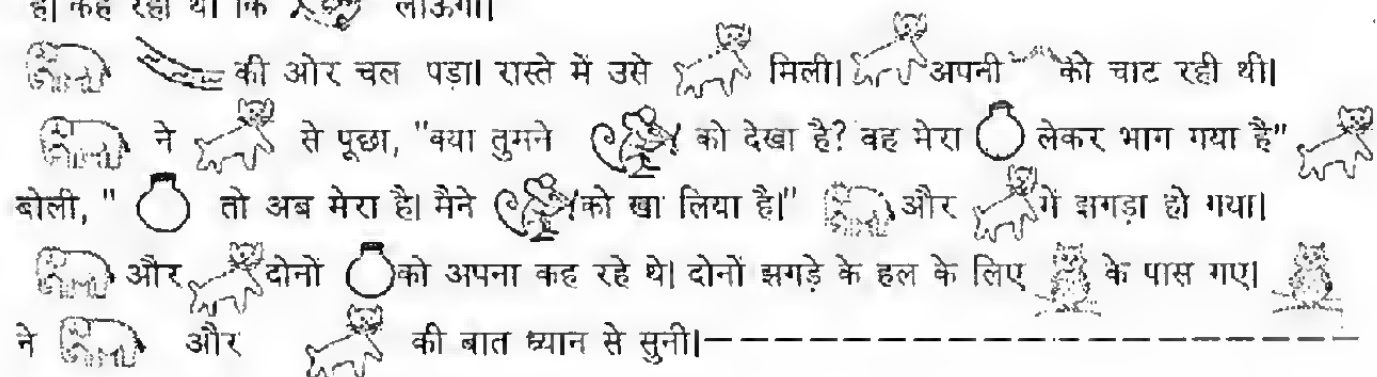 है। कह रहा था कि लाऊँगा।
की ओर चल पड़ा। रास्ते में उसे मिली। अपनी को चाट रही थी।
ने से पूछा, "क्या तुमने को देखा है? वह मेरा लेकर भाग गया है"
बोली, " तो अब मेरा है। मैने को खा लिया है।" और में झगड़ा हो गया।
और दोनों को अपना कह रहे थे। दोनों झगड़े के हल के लिए के पास गए।
ने और की बात ध्यान से सुनी।